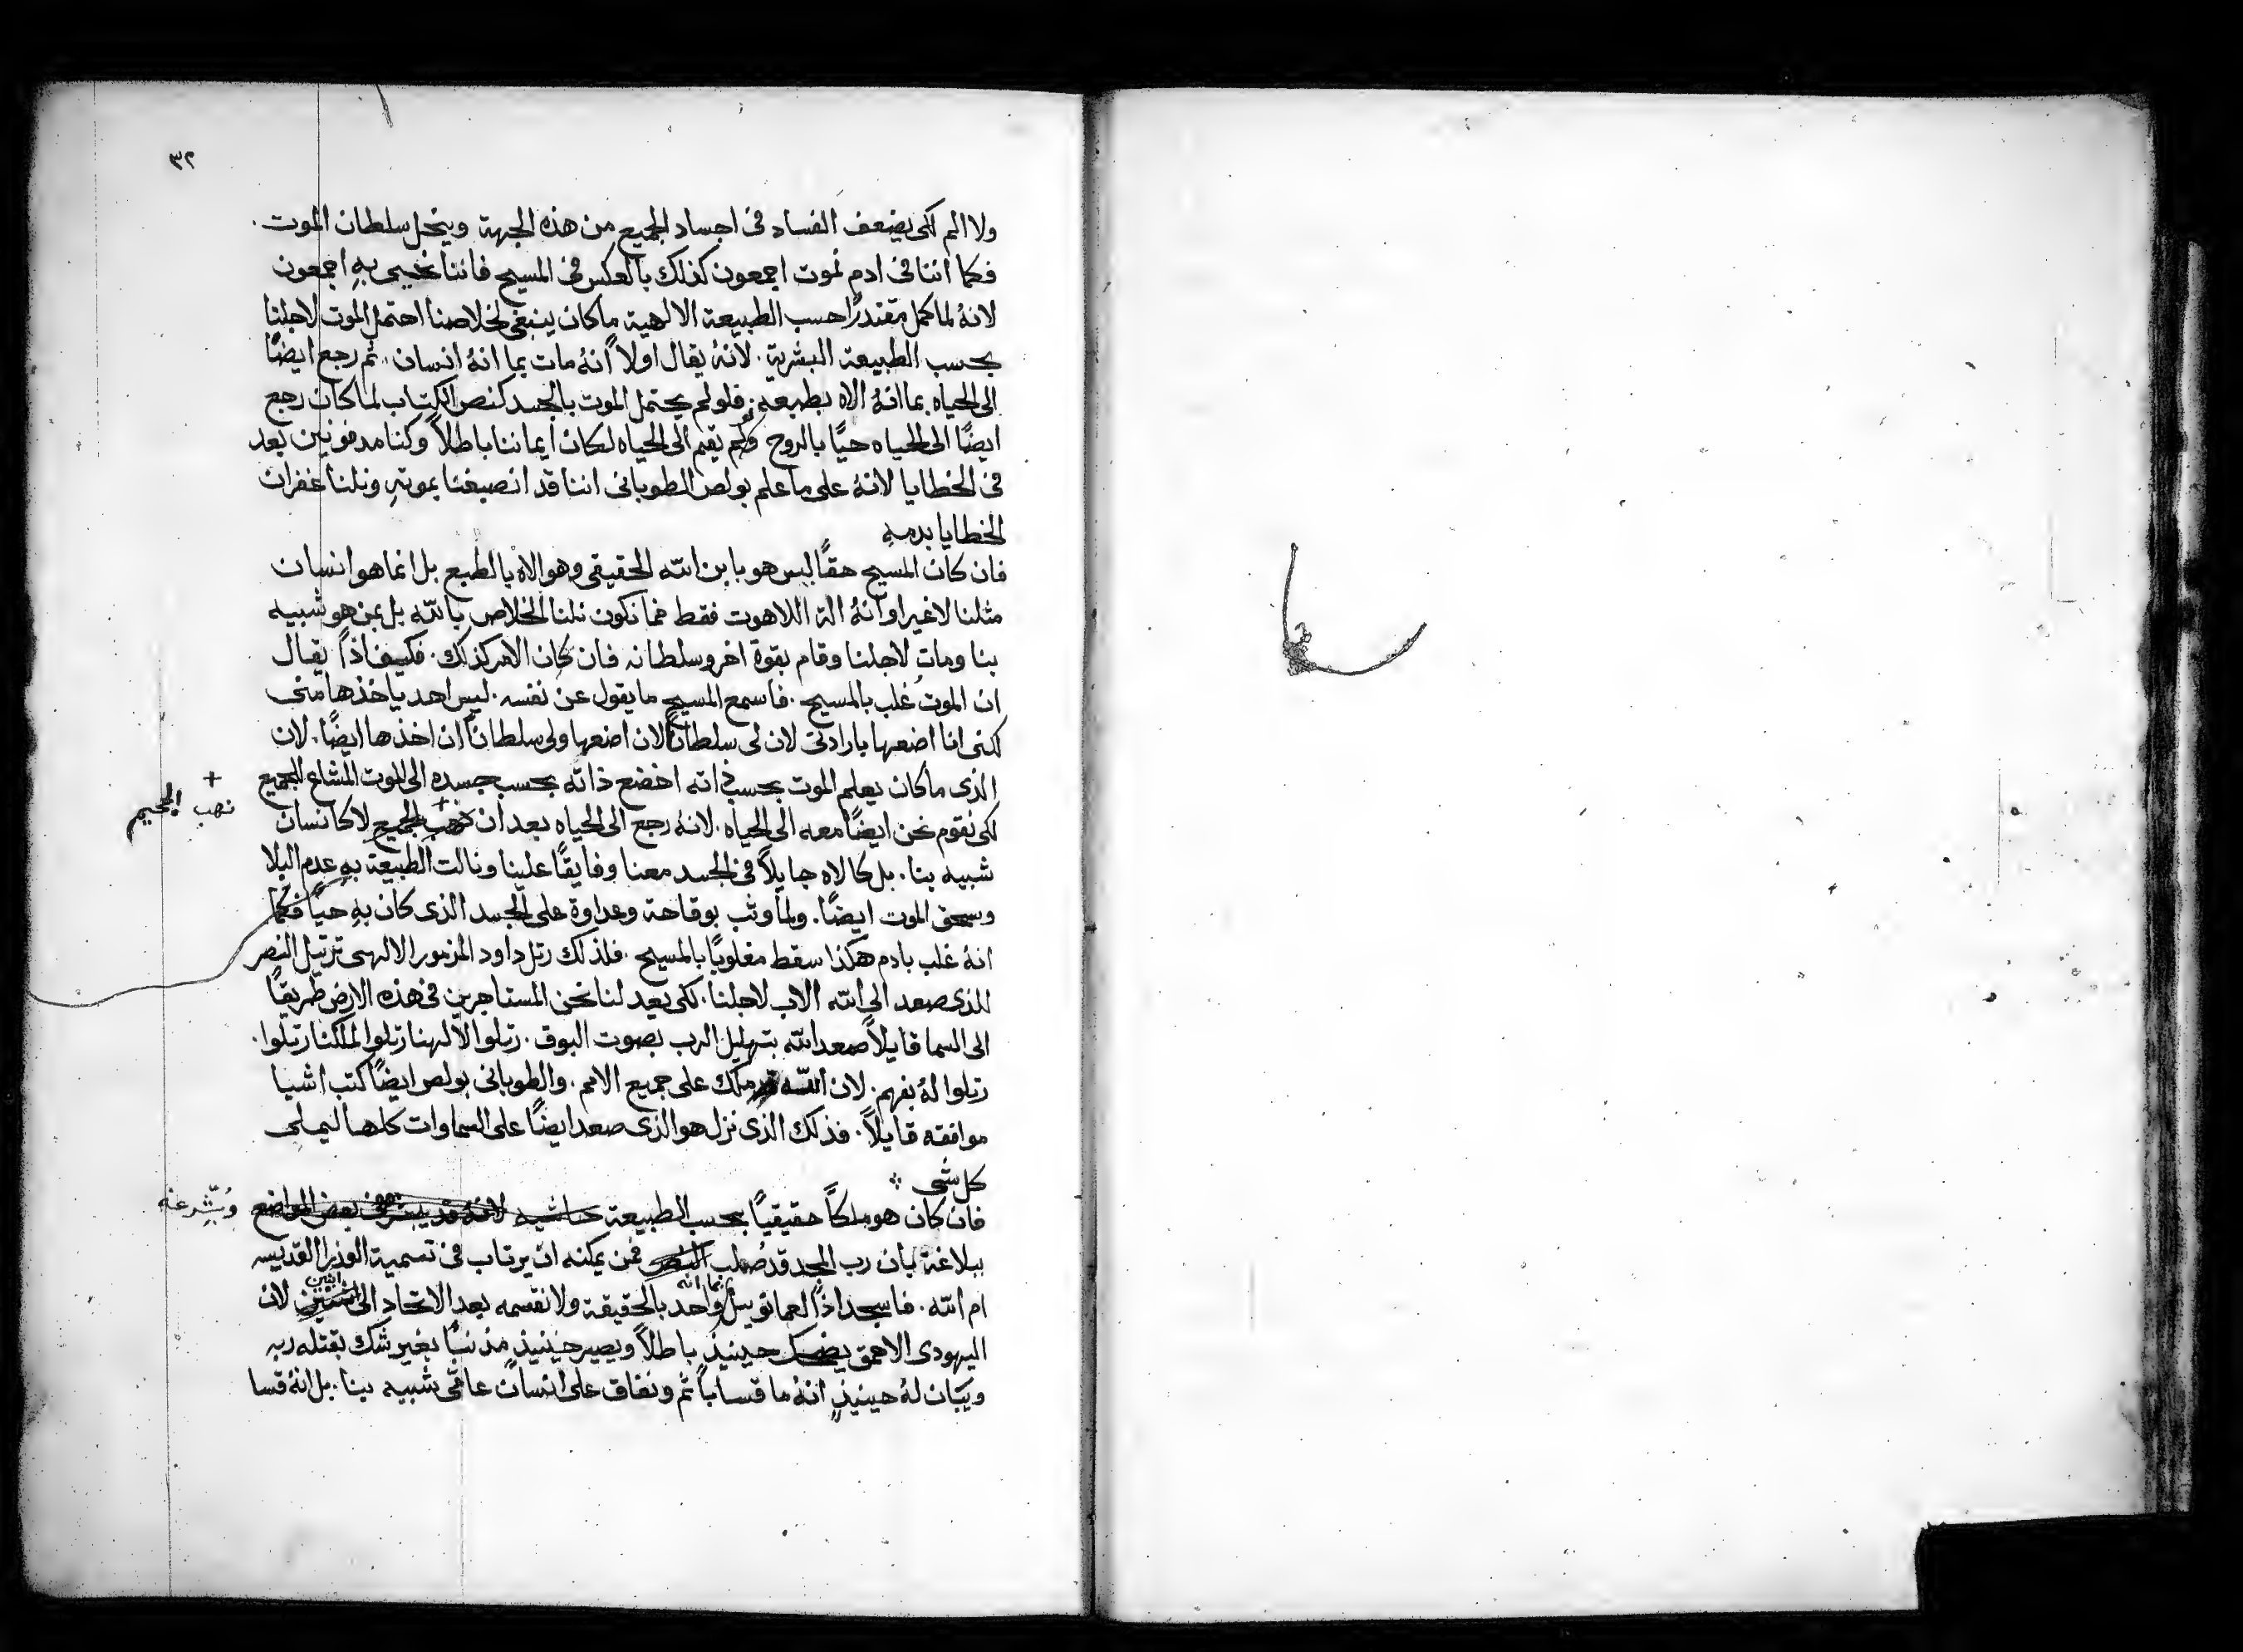 ٣٢
ولا الم لكى يضعف الفساد فى اجساد الجميع من هذه الجهة وينحل سلطان الموت .
فكما اننا فى ادم نموت اجمعون كذلك بالعكس فى المسيح فاننا نحيى بهِ اجمعون
لانهُ لما كمل مقتدرًا حسب الطبيعة الالهية ما كان ينبغى لخلاصنا احتمل الموت لاجلنا
بحسب الطبيعة البشرية . لانهُ يقال اولاً انهُ مات بما انهُ انسان . ثم رجع ايضًا
الى الحياه بما انهُ الاه بطبعهِ . فلو لم يحتمل الموت بالجسد كنص الكتاب لما كان رجع
ايضًا الى الحياه حيًا بالروح ولم يقم الى الحياه لكان ايماننا باطلاً وكنا مدفونين بعد
فى الخطايا لانهُ على ما علم بولص الطوبانى اننا قد انصبغنا بموتهِ ونلنا غفران
الخطايا بدمهِ
فان كان المسيح حقًا ليس هو بابن الله الحقيقى وهو الاه بالطبع بل انما هو انسان
مثلنا لا غير او انهُ الة اللاهوت فقط فما نكون نلنا الخلاص بالله بل بمن هو شبيه
بنا ومات لاجلنا وقام بقوة اخر وسلطانه فان كان الامر كذلك . فكيف اذًا يقال
ان الموت غُلب بالمسيح . فاسمع المسيح ما يقول عن نفسه . ليس احد ياخذها منى
لكنى انا اضعها بارادتى لان لى سلطانًا لان اضعها ولى سلطانًا ان اخذها ايضًا . لان
الذى ما كان يعلم الموت بحسب ذاته اخضع ذاته بحسب جسده الى الموت المشاع للجميع
+ نهب الجحيم
لكى نقوم نحن ايضًا معه الى الحياه . لانهُ رجع الى الحياه بعد ان + الجميع لا كانسان
شبيه بنا . بل كالاه جايلاً فى الجسد معنا وفايقًا علينا ونالت الطبيعة بهِ عدم البلا
وسحق الموت ايضًا . ولما وثب بوقاحة وعداوة على الجسد الذى كان بهِ حيًا فكما
انهُ غلب بادم هكذا سقط مغلوبًا بالمسيح . فلذلك رتل داود المزمور الالهى ترتيل النصر
للذى صعد الى الله الاب لاجلنا . لكى يعد لنا نحن المستاهرين فى هذه الارض طريقًا
الى السما قايلاً صعد الله بتهليل الرب بصوت البوق . رتلوا لالهنا رتلوا لملكنا رتلوا .
رتلوا لهُ بفهم . لان الله قد ملك على جميع الامم . والطوبانى بولص ايضًا كتب اشيا
موافقه قايلاً . فذلك الذى نزل هو الذى صعد ايضًا على السماوات كلها ليملى
كل شى
فان كان هو ملكًا حقيقيًا بحسب الطبيعة حاشيه لانه قد فى بعض المواضع
ببلاغة بان رب المجد قد صُلب فمن يمكنه ان يرتاب فى تسمية العذرا القديسه
ام الله . فاسجد اذًا لعمانوييل بما انه واحد بالحقيقة ولا نقسمه بعد الاتحاد الى اثنين لان
اليهودى الاحمق يضحك حينيذٍ باطلاً ويصير حينيذٍ مذنبًا بغير شك بقتله ربه
ويبان لهُ حينيذٍ انهُ ما قسا باثم ونفاق على انسان عامى شبيه بنا . بل انهُ قسا